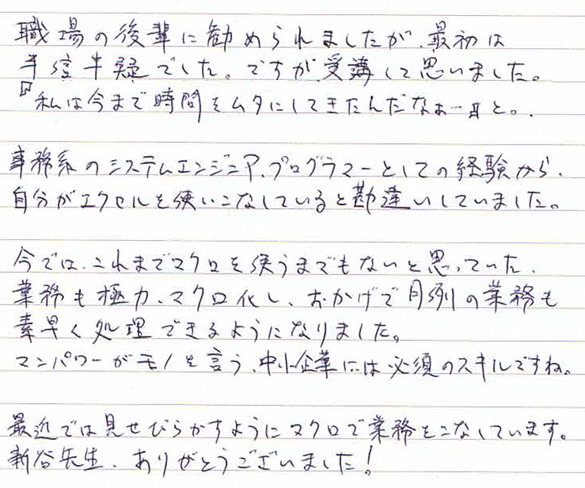 職場の後輩に勧められましたが、最初は
半信半疑でした。ですが、受講して思いました。
『私は今まで時間をムダにしてきたんだなぁ…』と。
事務系のシステムエンジニア、プログラマーとしての経験から、
自分がエクセルを使いこなしていると勘違いしていました。
今では、これまでマクロを使うまでもないと思っていた、
業務も極力、マクロ化し、おかげで月例の業務も
素早く処理できるようになりました。
マンパワーがモノを言う、中小企業には必須のスキルですね。
最近では見せびらかすようにマクロで業務をこなしています。
新谷先生、ありがとうございました!